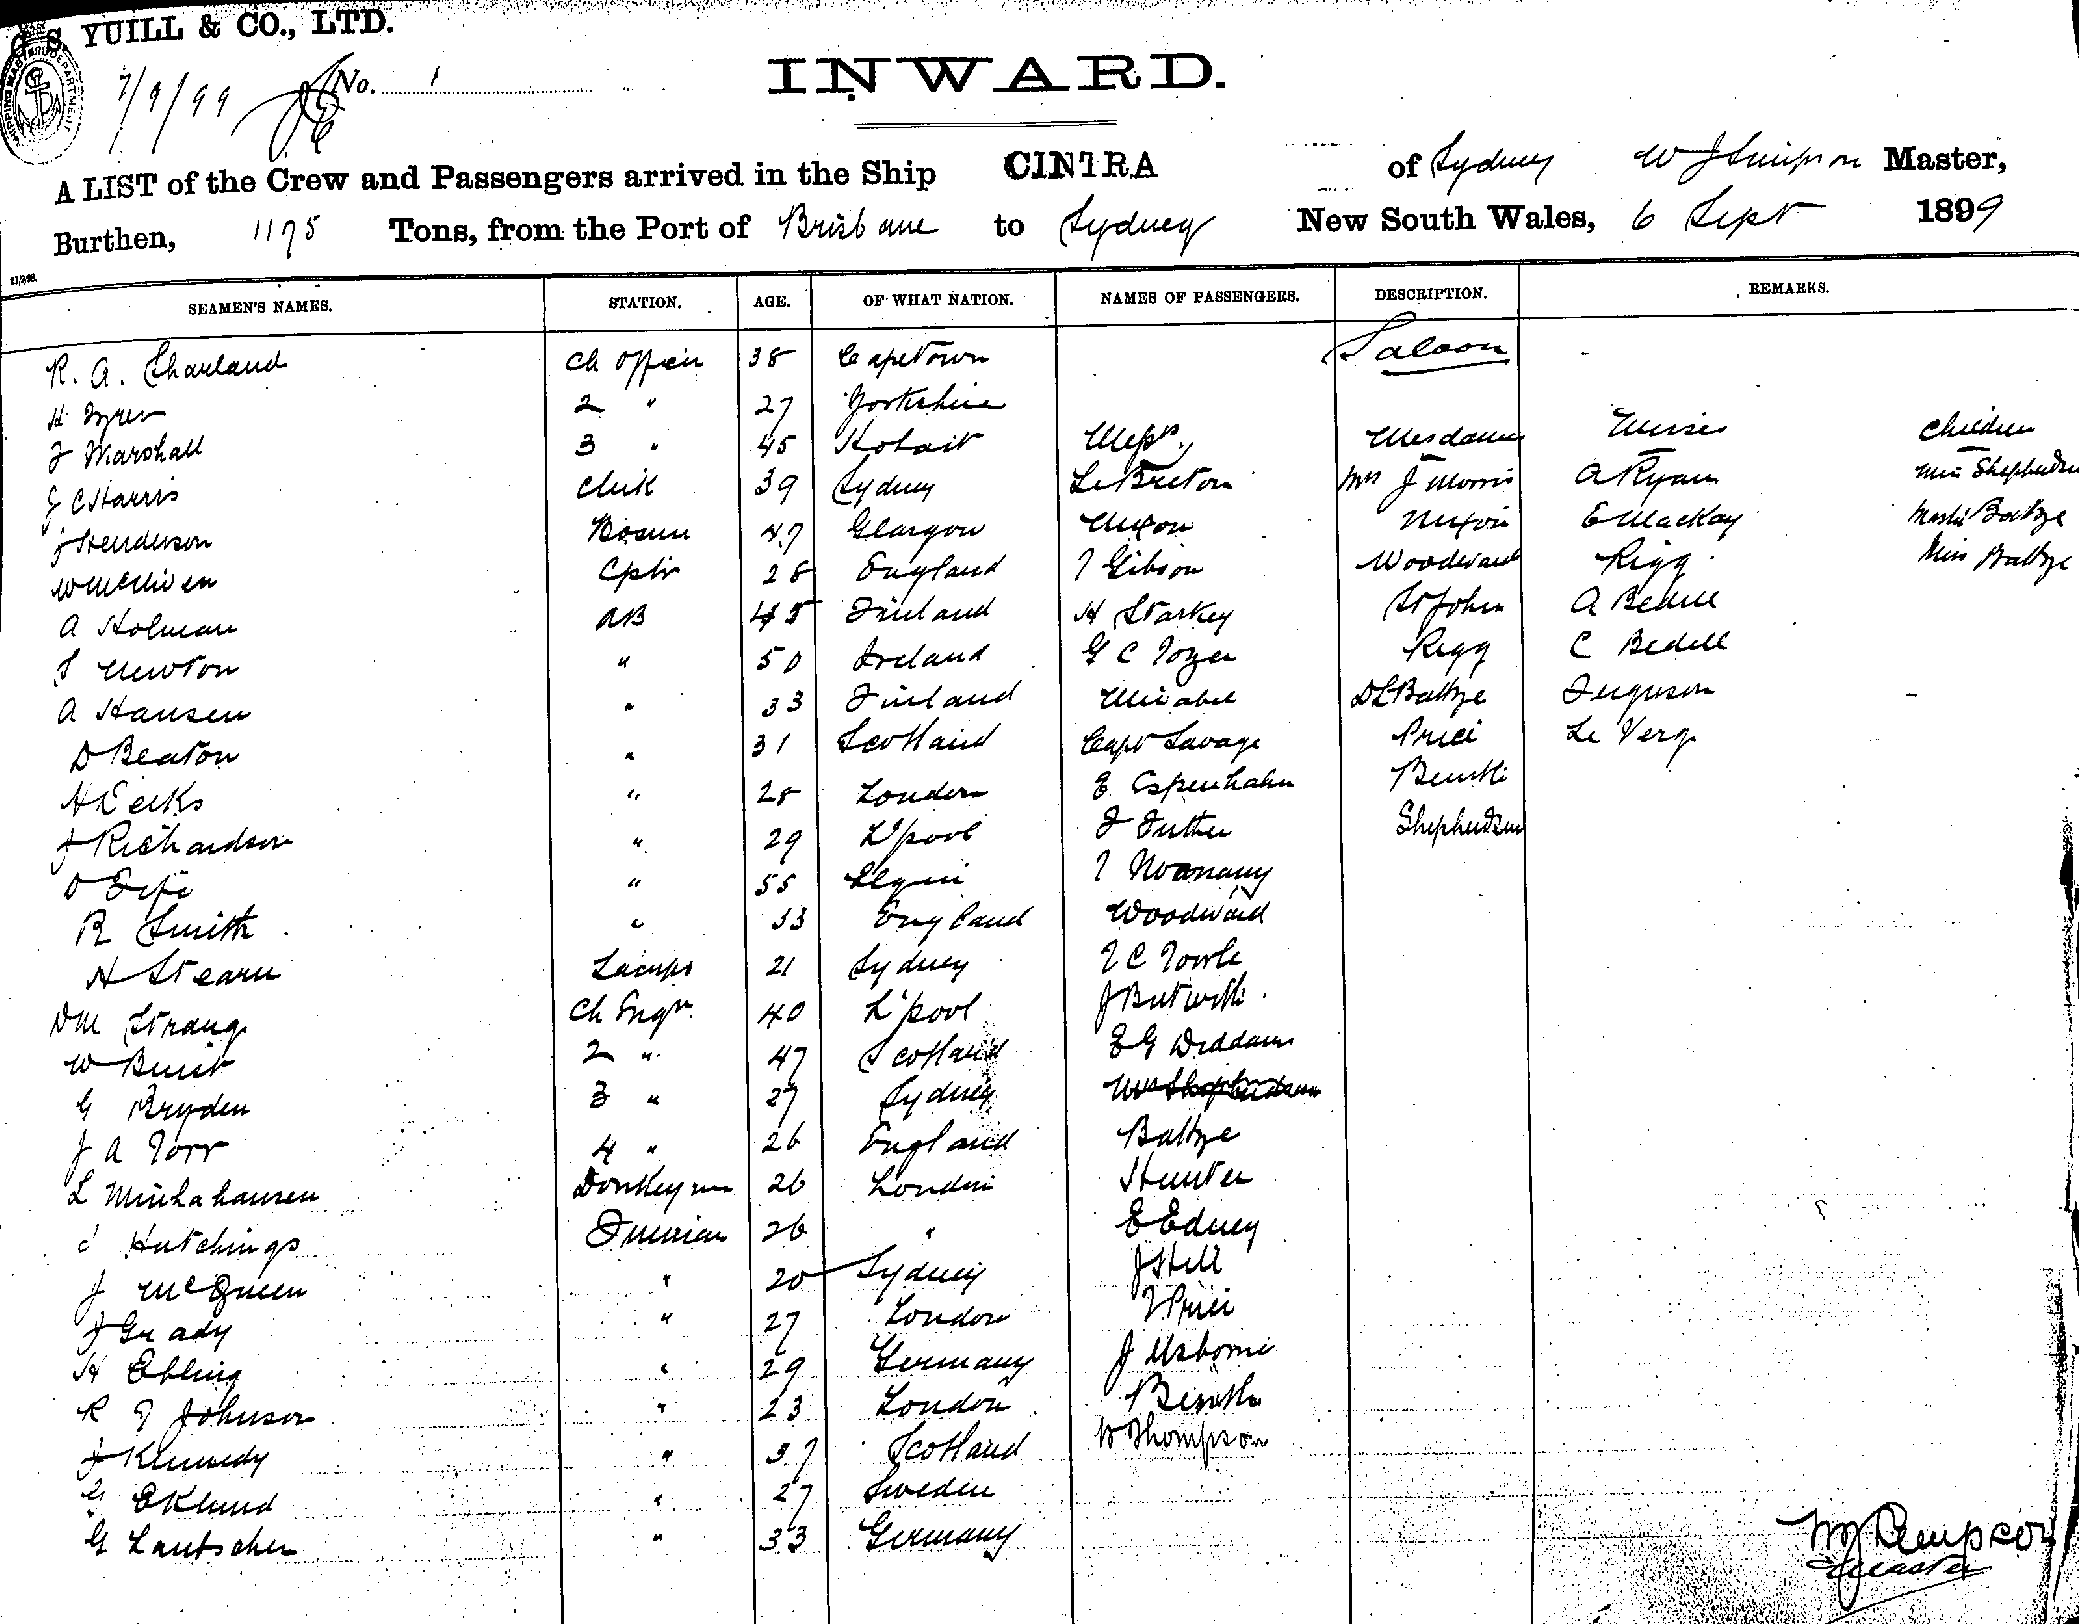 S. YUILL & CO., LTD.
7/9/99 No. 1
INWARD.
A LIST of the Crew and Passengers arrived in the Ship CINTRA of Sydney W J Simpson Master,
Burthen, 1195 Tons, from the Port of Brisbane to Sydney New South Wales, 6 Sept 1899
SEAMEN'S NAMES. STATION. AGE. OF WHAT NATION. NAMES OF PASSENGERS. DESCRIPTION. REMARKS.
R. A. Sharland Ch Officer 38 Capetown Saloon
H 2 " 27 Yorkshire
J Marshall 3 " 45 Hobart Messrs, Mesdames Misses Children
J C Harris Clerk 39 Sydney Le Breton Mrs J Morris A Ryan Miss Shepherdson
J Henderson Bosun 47 Glasgow Nixon Nixon E Mackay Master Battye
Cptr 28 England T Gibson Woodward Rigg Miss Battye
A Holman AB 45 Finland H Starkey St John A Bedell
S Newton " 50 Ireland G C Tozer Rigg C Bedell
A Hansen " 33 Finland Mirabel D L Battye Ferguson
D Beaton " 31 Scotland Capt Savage Price Le Verg
" 28 London E Espenhahn
J Richardson " 29 L'pool Shepherdson
" 55 Elgin
R Smith " 33 England Woodward
H Stearn Lamps 21 Sydney T C Towle
D M Strang Ch Engr. 40 L'pool
W Buist 2 " 47 Scotland E G Diddams
G Bryden 3 " 27 Sydney Mrs Shepherdson
J A Torr 4 " 26 England Battye
Donkeyman 26 London Hunter
C Hutchings Fireman 26 " E Edney
J McQueen " 20 Sydney J Hill
J Grady " 27 London T Price
H Ebling " 29 Germany J Usborne
R J Johnson " 23 London
J Kennedy " 37 Scotland W Thompson
G Eklund " 27 Sweden
G Lautscher " 33 Germany
W J Simpson
Master